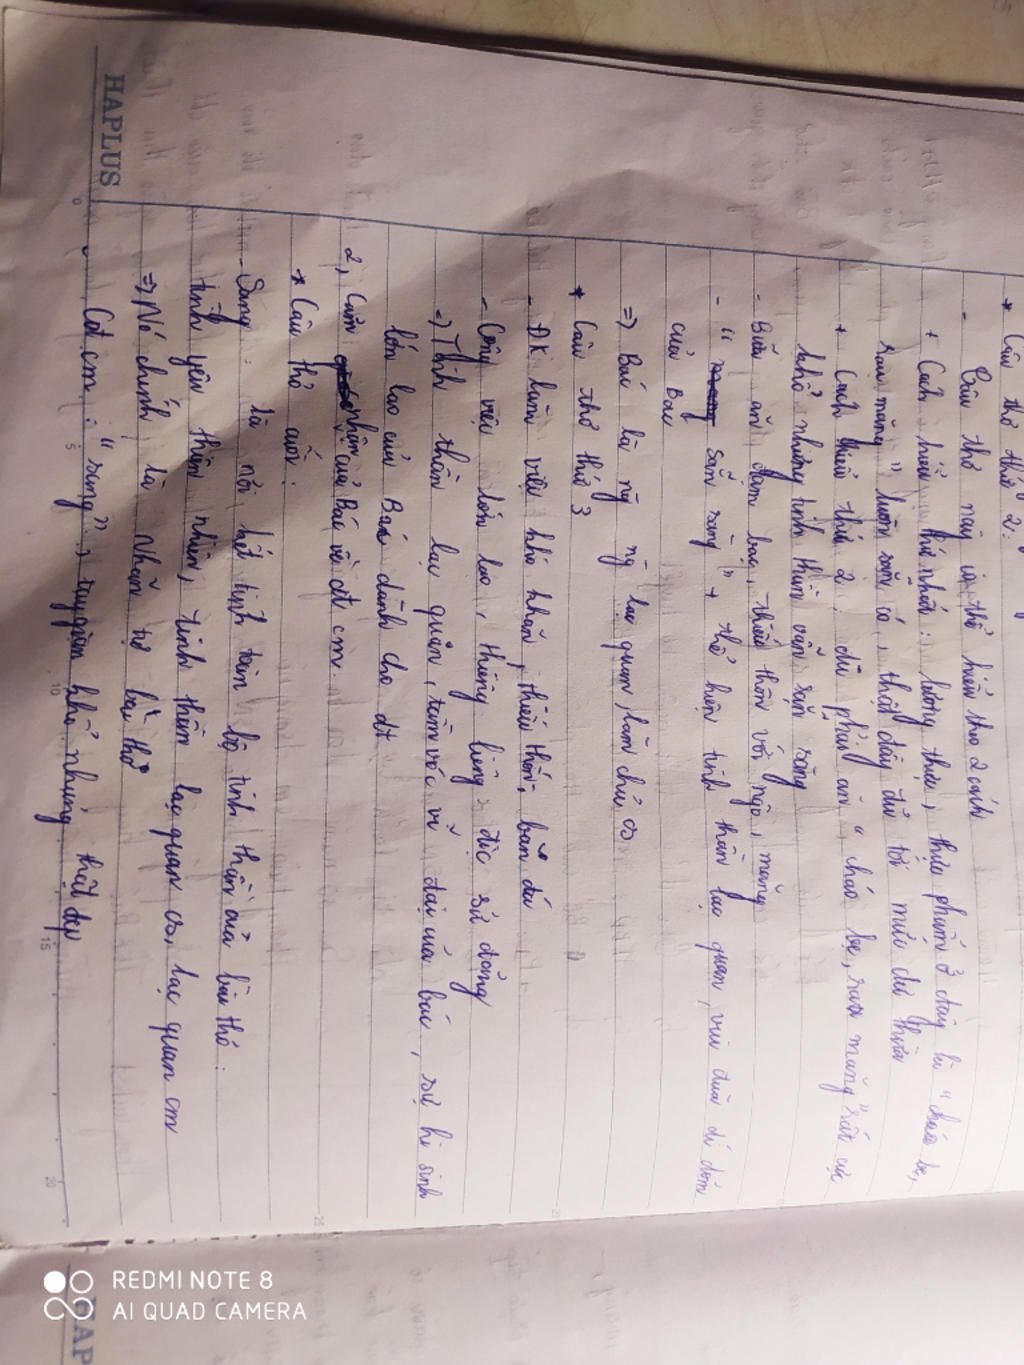 * Câu thơ thứ 2:
- Câu thơ này có thể hiểu theo 2 cách
+ Cách hiểu thứ nhất: lương thực, thực phẩm ở đây là "cháo bẹ,
rau măng" luôn sẵn có, thật đầy đủ tới mức dư thừa
+ Cách hiểu thứ 2: dù phải ăn "cháo bẹ, rau măng" rất cực
khổ nhưng tinh thần vẫn sẵn sàng
- Bữa ăn đạm bạc, thiếu thốn với ngô, măng
- " sẵn sàng" + thể hiện tinh thần lạc quan, vui đùa dí dỏm
của Bác
=> Bác là ng lạc quan, làm chủ cs
* Câu thơ thứ 3
- ĐK làm việc khó khăn, thiếu thốn, bàn đá
- Công việc lớn lao, thiêng liêng: dịc sử đảng
=> Tinh thần lạc quan, tầm vóc vĩ đại của bác, sự hi sinh
lớn lao của Bác dành cho đt
2, Cảm nhận của Bác về đt cm.
* Câu thơ cuối:
- Sang: là nói hết tinh toàn bộ tinh thần của bài thơ.
tình yêu thiên nhiên, tinh thần lạc quan cs, lạc quan cm
=> Nó chính là nhãn tự bài thơ
Cđ cm: "sang", tuy gian khổ nhưng thật đẹp
HAPLUS
0
5
10
15
20
25
REDMI NOTE 8
AI QUAD CAMERA